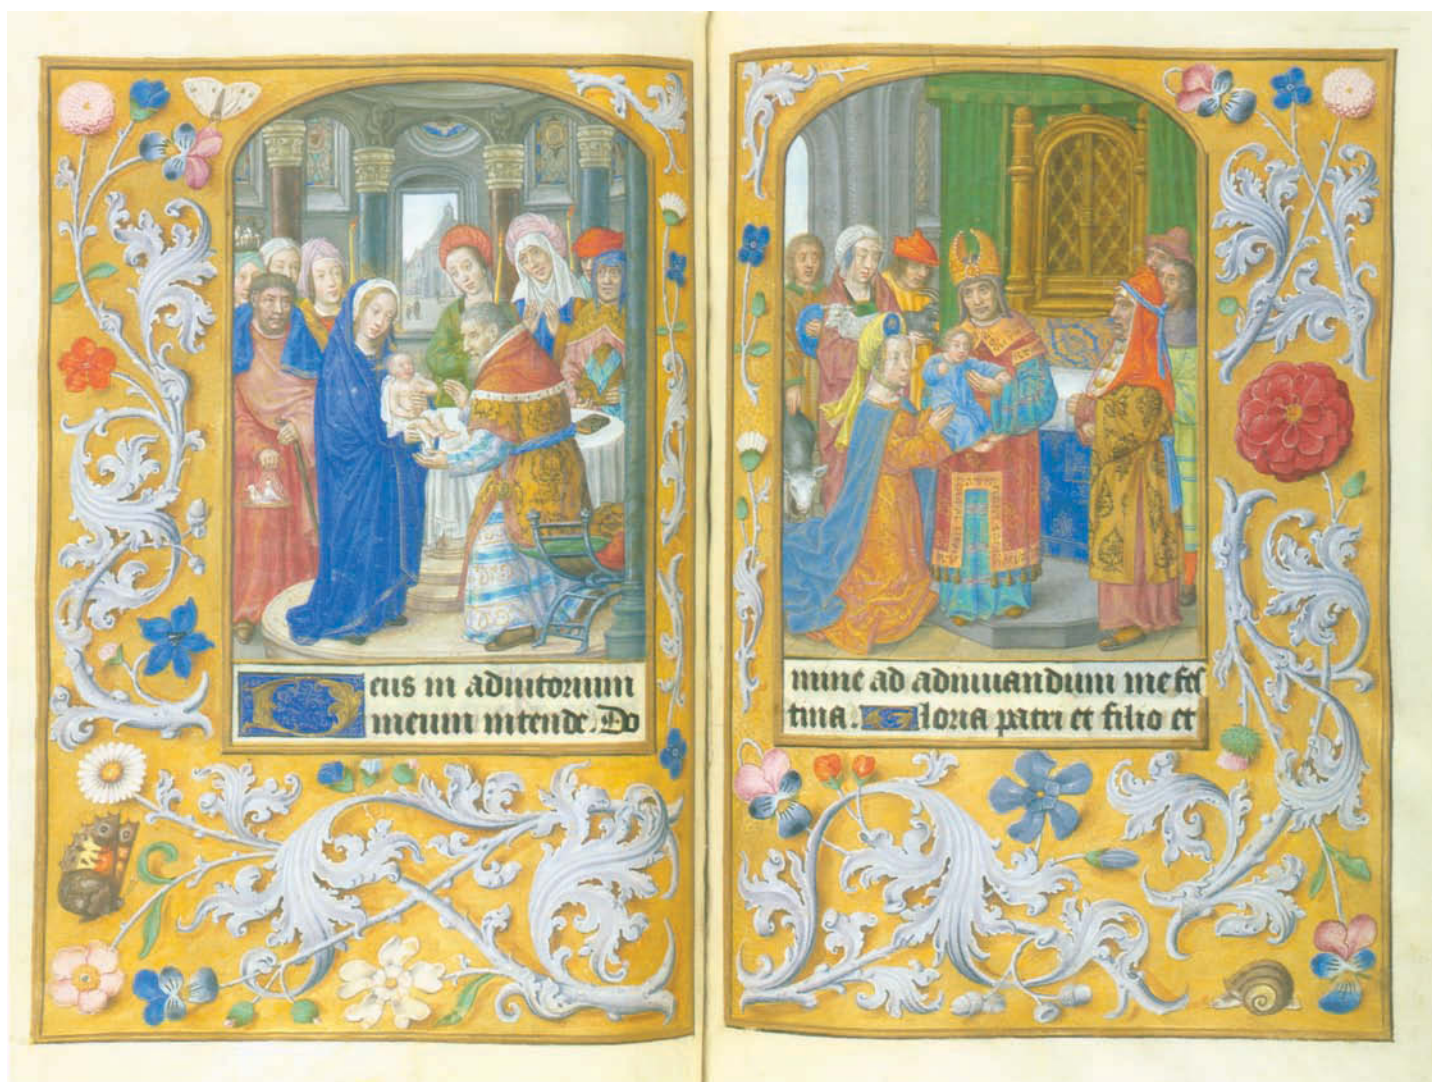 Deus in adiutorium
meum intende. Do
mine ad adiuuandum me fes
tina. Gloria patri et filio et